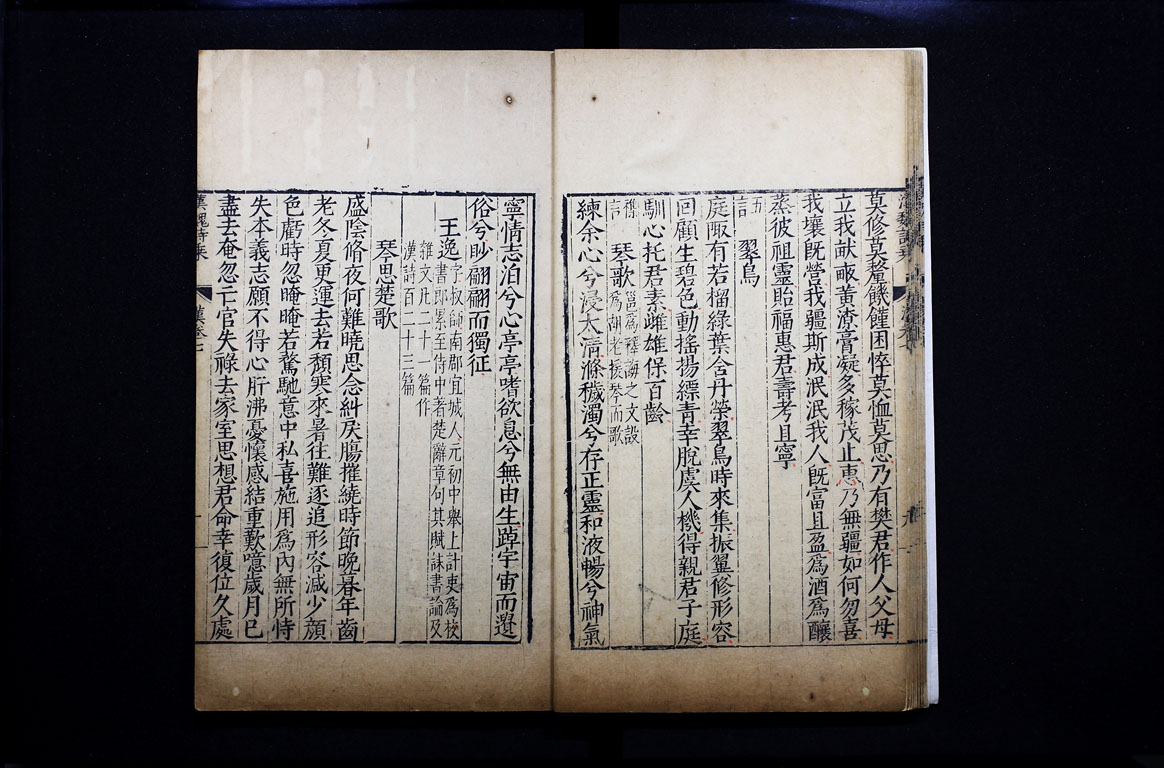 莫修莫釐饑饉困悴莫恤莫思乃有樊君作人父母
立我畎畝黃潦膏凝多稼茂止惠乃無疆如何勿喜
我壤旣營我疆斯成泯泯我人旣富且盈爲酒爲釀
蒸彼祖靈貽福惠君壽考且寧
五言
翠鳥
庭陬有若榴綠葉含丹榮翠鳥時來集振翼修形容
回顧生碧色動搖揚縹青幸脫虞人機得親君子庭
馴心托君素雌雄保百齡
襍言
琴歌
邕爲釋誨之文設
爲胡老援琴而歌
練余心兮浸太淸滌穢濁兮存正靈和液暢兮神氣
寧情志泊兮心亭亭嗜欲息兮無由生踔宇宙而遺
俗兮眇翩翩而獨征
王逸
字叔師南郡宜城人元初中舉上計吏爲校
書郎累至侍中著楚辭章句其賦誄書論及
雜文凡二十一篇作
漢詩百二十三篇
琴思楚歌
盛陰脩夜何難曉思念糾戾膓摧繞時節晚暮年齒
老冬夏更運去若頹寒來暑往難逐追形容減少顏
色虧時忽晻晻若騖馳意中私喜施用爲內無所恃
失本義志願不得心肝沸憂懷感結重歎噫歲月已
盡去奄忽亡官失祿去家室思想君命幸復位久處
漢魏詩乘
漢卷七